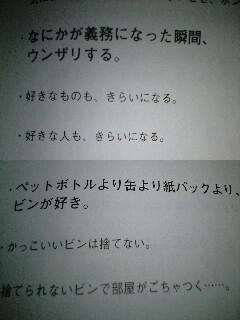 ・なにかが義務になった瞬間、
ウンザリする。
・好きなものも、きらいになる。
・好きな人も、きらいになる。
・ペットボトルより缶より紙パックより、
ビンが好き。
・かっこいいビンは捨てない。
捨てられないビンで部屋がごちゃつく……。